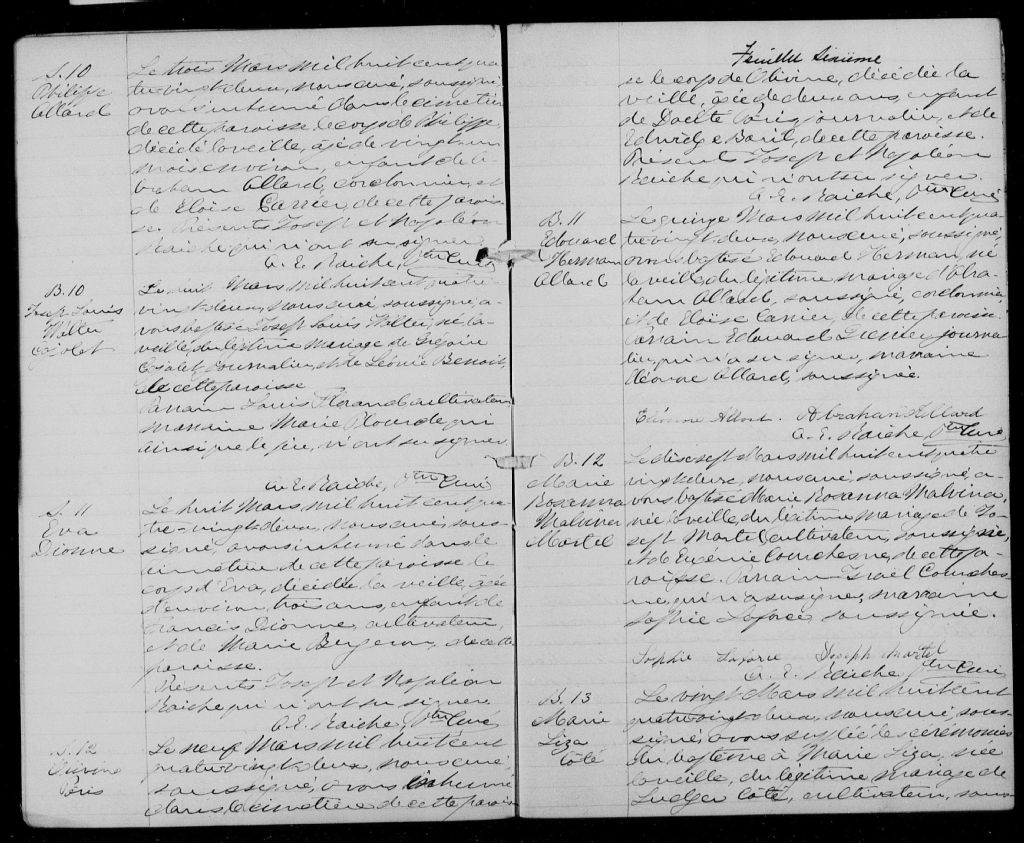 S. 10
Philippe
Allard
Le trois Mars mil huit cent qua-
tre vingt deux, nous curé, soussigné
avons inhumé dans le cimetière
de cette paroisse le corps de Philippe
décédé la veille, agé de vingt un
mois environ, enfant de A-
braham Allard, cordonnier, et
de Eloïse Carrier, de cette parois-
se. Présents Joseph et Napoléon
Raiche qui n'ont su signer.
A. E. Raiche, Ptre Curé
B. 10
Joseph Louis
Walter
Cajolet
Le huit Mars mil huit cent quatre
vingt deux, nous curé soussigné, a-
vons baptisé Joseph Louis Walter, né la
veille, du légitime mariage de Grégoire
Cajolet, journalier, et de Léonie Benoit,
de cette paroisse
Parrain Louis cultivateur,
marraine Marie Plourde qui
ainsi que le père, n'ont su signer.
A. E. Raiche, Ptre Curé
S. 11
Eva
Dionne
Le huit Mars mil huit cent qua-
tre-vingt deux, nous curé, sous-
signé, avons inhumé dans le
cimetière de cette paroisse le
corps d'Eva, décédée la veille, agée
d'environ trois ans, enfant de
Francis Dionne, cultivateur,
et de Marie Bergeron, de cette
paroisse.
Présents Joseph et Napoléon
Raiche qui n'ont su signer
A. E. Raiche, Ptre Curé
S. 12
Olivine
Paris
Le neuf Mars mil huit cent
quatre vingt deux, nous curé,
soussigné, avons inhumé
dans le cimetière de cette parois-
Feuillet Sixième
se le corps de Olivine, décédée la
veille, agée de deux ans, enfant
de Paris, journalier, et de
Edwidge Baril, de cette paroisse.
Présents Joseph et Napoléon
Raiche, qui n'ont su signer.
A. E. Raiche, Ptre Curé
B. 11
Edouard
Herman
Allard
Le quinze Mars mil huit cent qua-
tre vingt deux, nous curé, soussigné,
avons baptisé Edouard Herman, né
la veille, du légitime mariage d'Abra-
ham Allard, soussigné, cordonnier,
et de Eloïse Carrier, de cette paroisse.
Parrain Edouard journa-
lier, qui n'a su signer, marraine
Eléonore Allard, soussignée.
Eléonore Allard. Abraham Allard
A. E. Raiche, Ptre Curé
B. 12
Marie
Rosanna
Malvina
Martel
Le dix sept Mars mil huit cent quatre
vingt deux, nous curé, soussigné, a-
vons baptisé Marie Rosanna Malvina,
née la veille, du légitime mariage de Jo-
seph Martel, cultivateur, soussigné,
et de Eugénie Courchesne, de cette pa-
roisse. Parrain Israël Courches-
ne, qui n'a su signer, marraine
Sophie Laforce, soussignée.
Sophie Laforce Joseph Martel
A. E. Raiche, Ptre Curé
B. 13
Marie
Liza
Côté
Le vingt Mars mil huit cent
quatre vingt deux, nous curé, sous-
signé, avons suppléé les cérémonies
du baptême à Marie Liza, née
la veille, du légitime mariage de
Ludger Côté, cultivateur, sous-